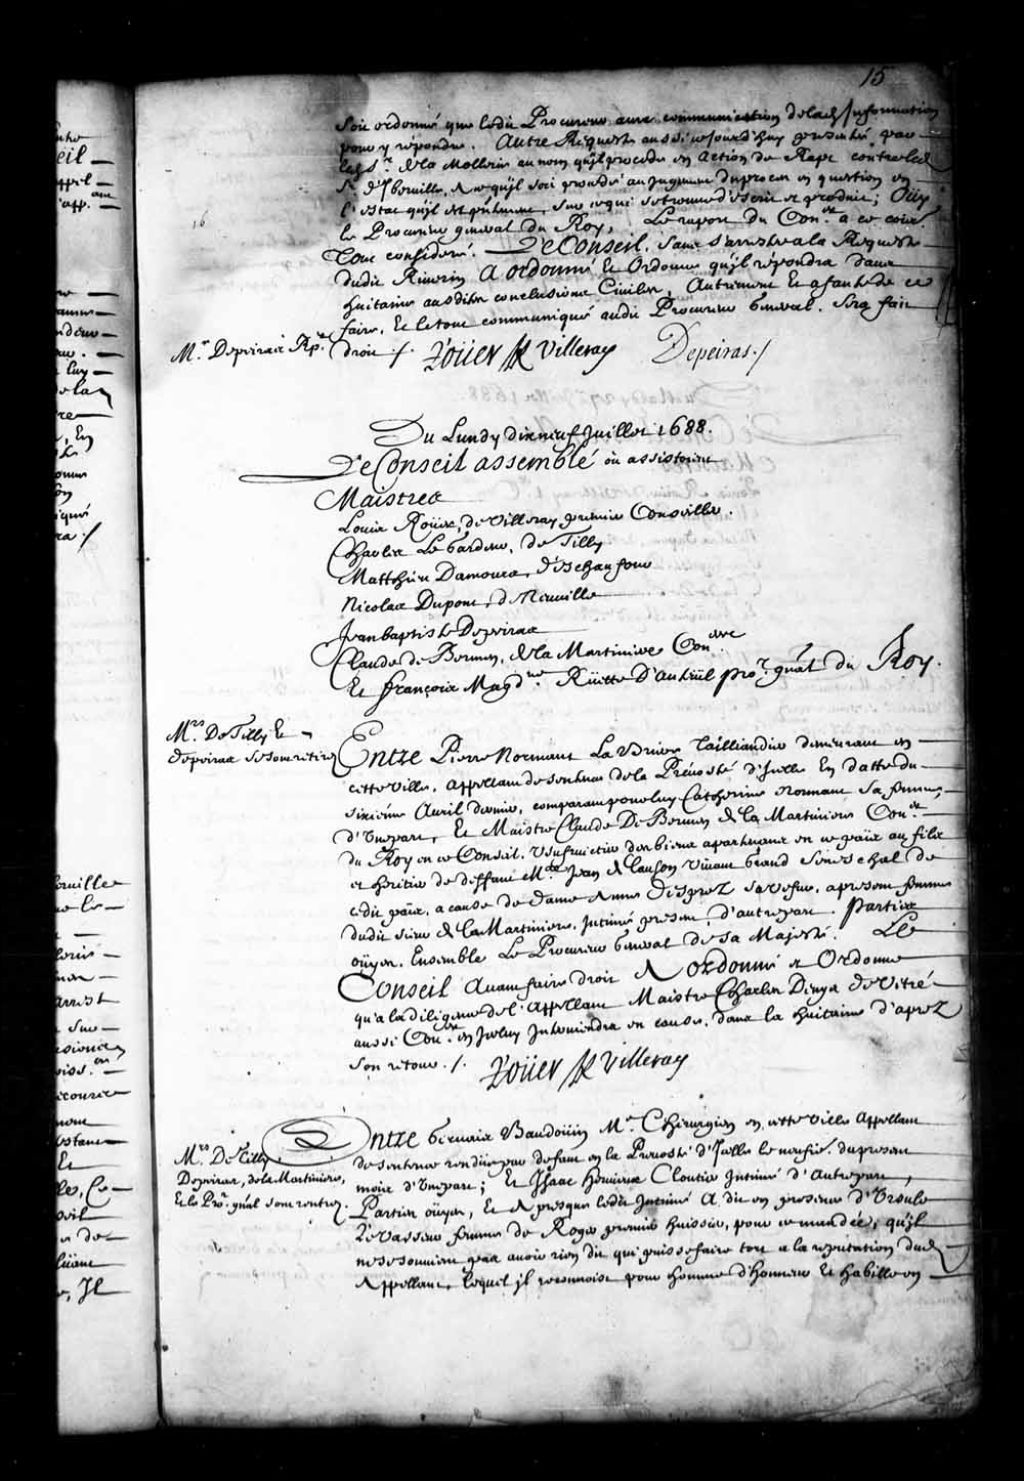 15
Soit ordonné que ledit Procureur aura communication de lad. Information
pour y repondre. Autre Requeste aussi ce jourd'huy presentée par
led. Sr. de la Molleries au nom qu'il procede en action de Rapt contre led.
Sr. d'Iberville, à ce qu'il soit procedé au jugement du procez en question en
l'estat qu'il est
le Procureur general du Roy, Le raport du Coner. a ce commis
Tout consideré. Le Conseil, sans s'arrester a la Requeste
dudit Riverin A ordonné Et Ordonne qu'il repondra dans
huitaine ausdites conclusions Civiles, Autrement Et a faute de ce
faire, Et le tout communiqué audit Procureur General, Sera fait
Mr. Depeiras Rpr. droit ./. Roüer de Villeray Depeiras./
Du Lundy dix neuf Juillet 1688.
Le Conseil assemblé où assistoient
Maistres
Louis Roüer, de Villeray premier Conseiller.
Charles Le Gardeur, de Tilly
Matthieu Damours, d'Eschaufour
Nicolas Dupont, de Neuville
Jean baptiste Depeiras
Claude de Bermen, de la Martiniere Coners.
Et françois Magdne. Rüette D'auteüil pror. gnal du Roy.
Mrs De Tilly Et
Depeiras se sont retirez
Entre Pierre Normant La Briere Taillandier demeurant en
cette ville, appellant de sentence de la Prevosté d'Icelle En datte du
sixiéme Avril dernier, comparant pour luy Catherine Normant sa femme,
d'Une part, Et Maistre Claude De Bermen de la Martiniere Coner.
du Roy en ce Conseil, Usufruictier des biens apartenans en ce païs au fils
et heritier de deffunt Mre Jean de Lauson vivant Grand Seneschal de
cedit païs, a cause de Dame Anne Desprez sa vefve, apresent femme
dudit sieur de la Martiniere, Intimé present, d'autre part. Parties
oüyes, Ensemble Le Procureur General de sa Majesté. Le
Conseil Avant faire droit A ordonné et Ordonne
qu'a la diligence de l'Appellant Maistre Charles Denys de Vitré
aussi Coner. en Iceluy Interviendra en cause, dans la huitaine d'aprez
son retour ./. Roüer de Villeray
Mrs. De Tilly
Depeiras, de la Martiniere,
Et le Pror. gnal sont rentrez.
Entre Gervais Baudoüin Me. Chirurgien en cette ville Appellant
de sentence rendüe par defaut en la Prevosté d'Icelle le neufié. du present
mois d'Une part; Et Isaac Hervieux Cloutier Intimé d'Autre part,
Parties oüyes, Et A presque ledit Intimé A dit en presence d'Ursule
Levasseur femme de Roger premier huissier, pour ce mandée, qu'il
ne se souvient pas avoir rien dit qui puisse faire tort a la reputation dud.
Appellant, lequel il reconnoist pour homme d'honneur Et habille en